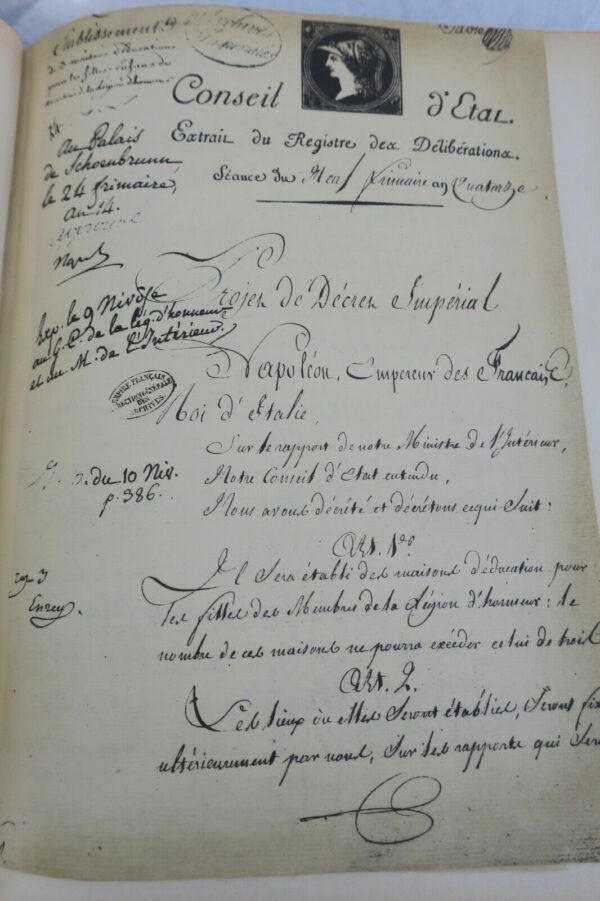 Etablissement
de 3 maisons d'éducation
pour les filles enfans des
membres de la Légion d'honneur
Archives
Impériales
Conseil d'Etat.
Extrait du Registre des Délibérations.
Séance du Neuf frimaire an Quatorze
au Palais
de Schoenbrunn
le 24 frimaire,
an 14.
approuvé
Nap
Projet de Décret Impérial
Exp. le 9 Nivôse
au G. C. de la Lég. d'honneur
et au M. de l'Intérieur.
Napoléon, Empereur des Français,
Roi d'Italie,
EMPIRE FRANÇAIS
SECTION GÉNÉRALE
DES
ARCHIVES
Sur le rapport de notre Ministre de l'Intérieur,
du 10 Niv.
p. 386.
Notre Conseil d'Etat entendu,
Nous avons décrété et décrétons ce qui Suit :
Art. 1er
Il Sera établi des maisons d'éducation pour
les filles des Membres de la Légion d'honneur : le
nombre de ces maisons ne pourra excéder celui de trois
Art. 2.
Les lieux où elles Seront établies, Seront fix
ultérieurement par nous, Sur les rapports qui Ser